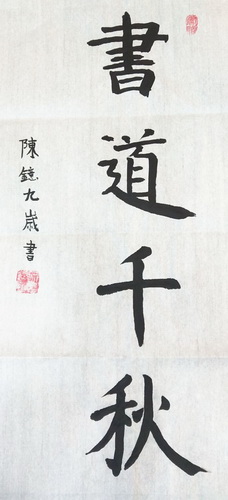 書道千秋
陳鐿九歲書